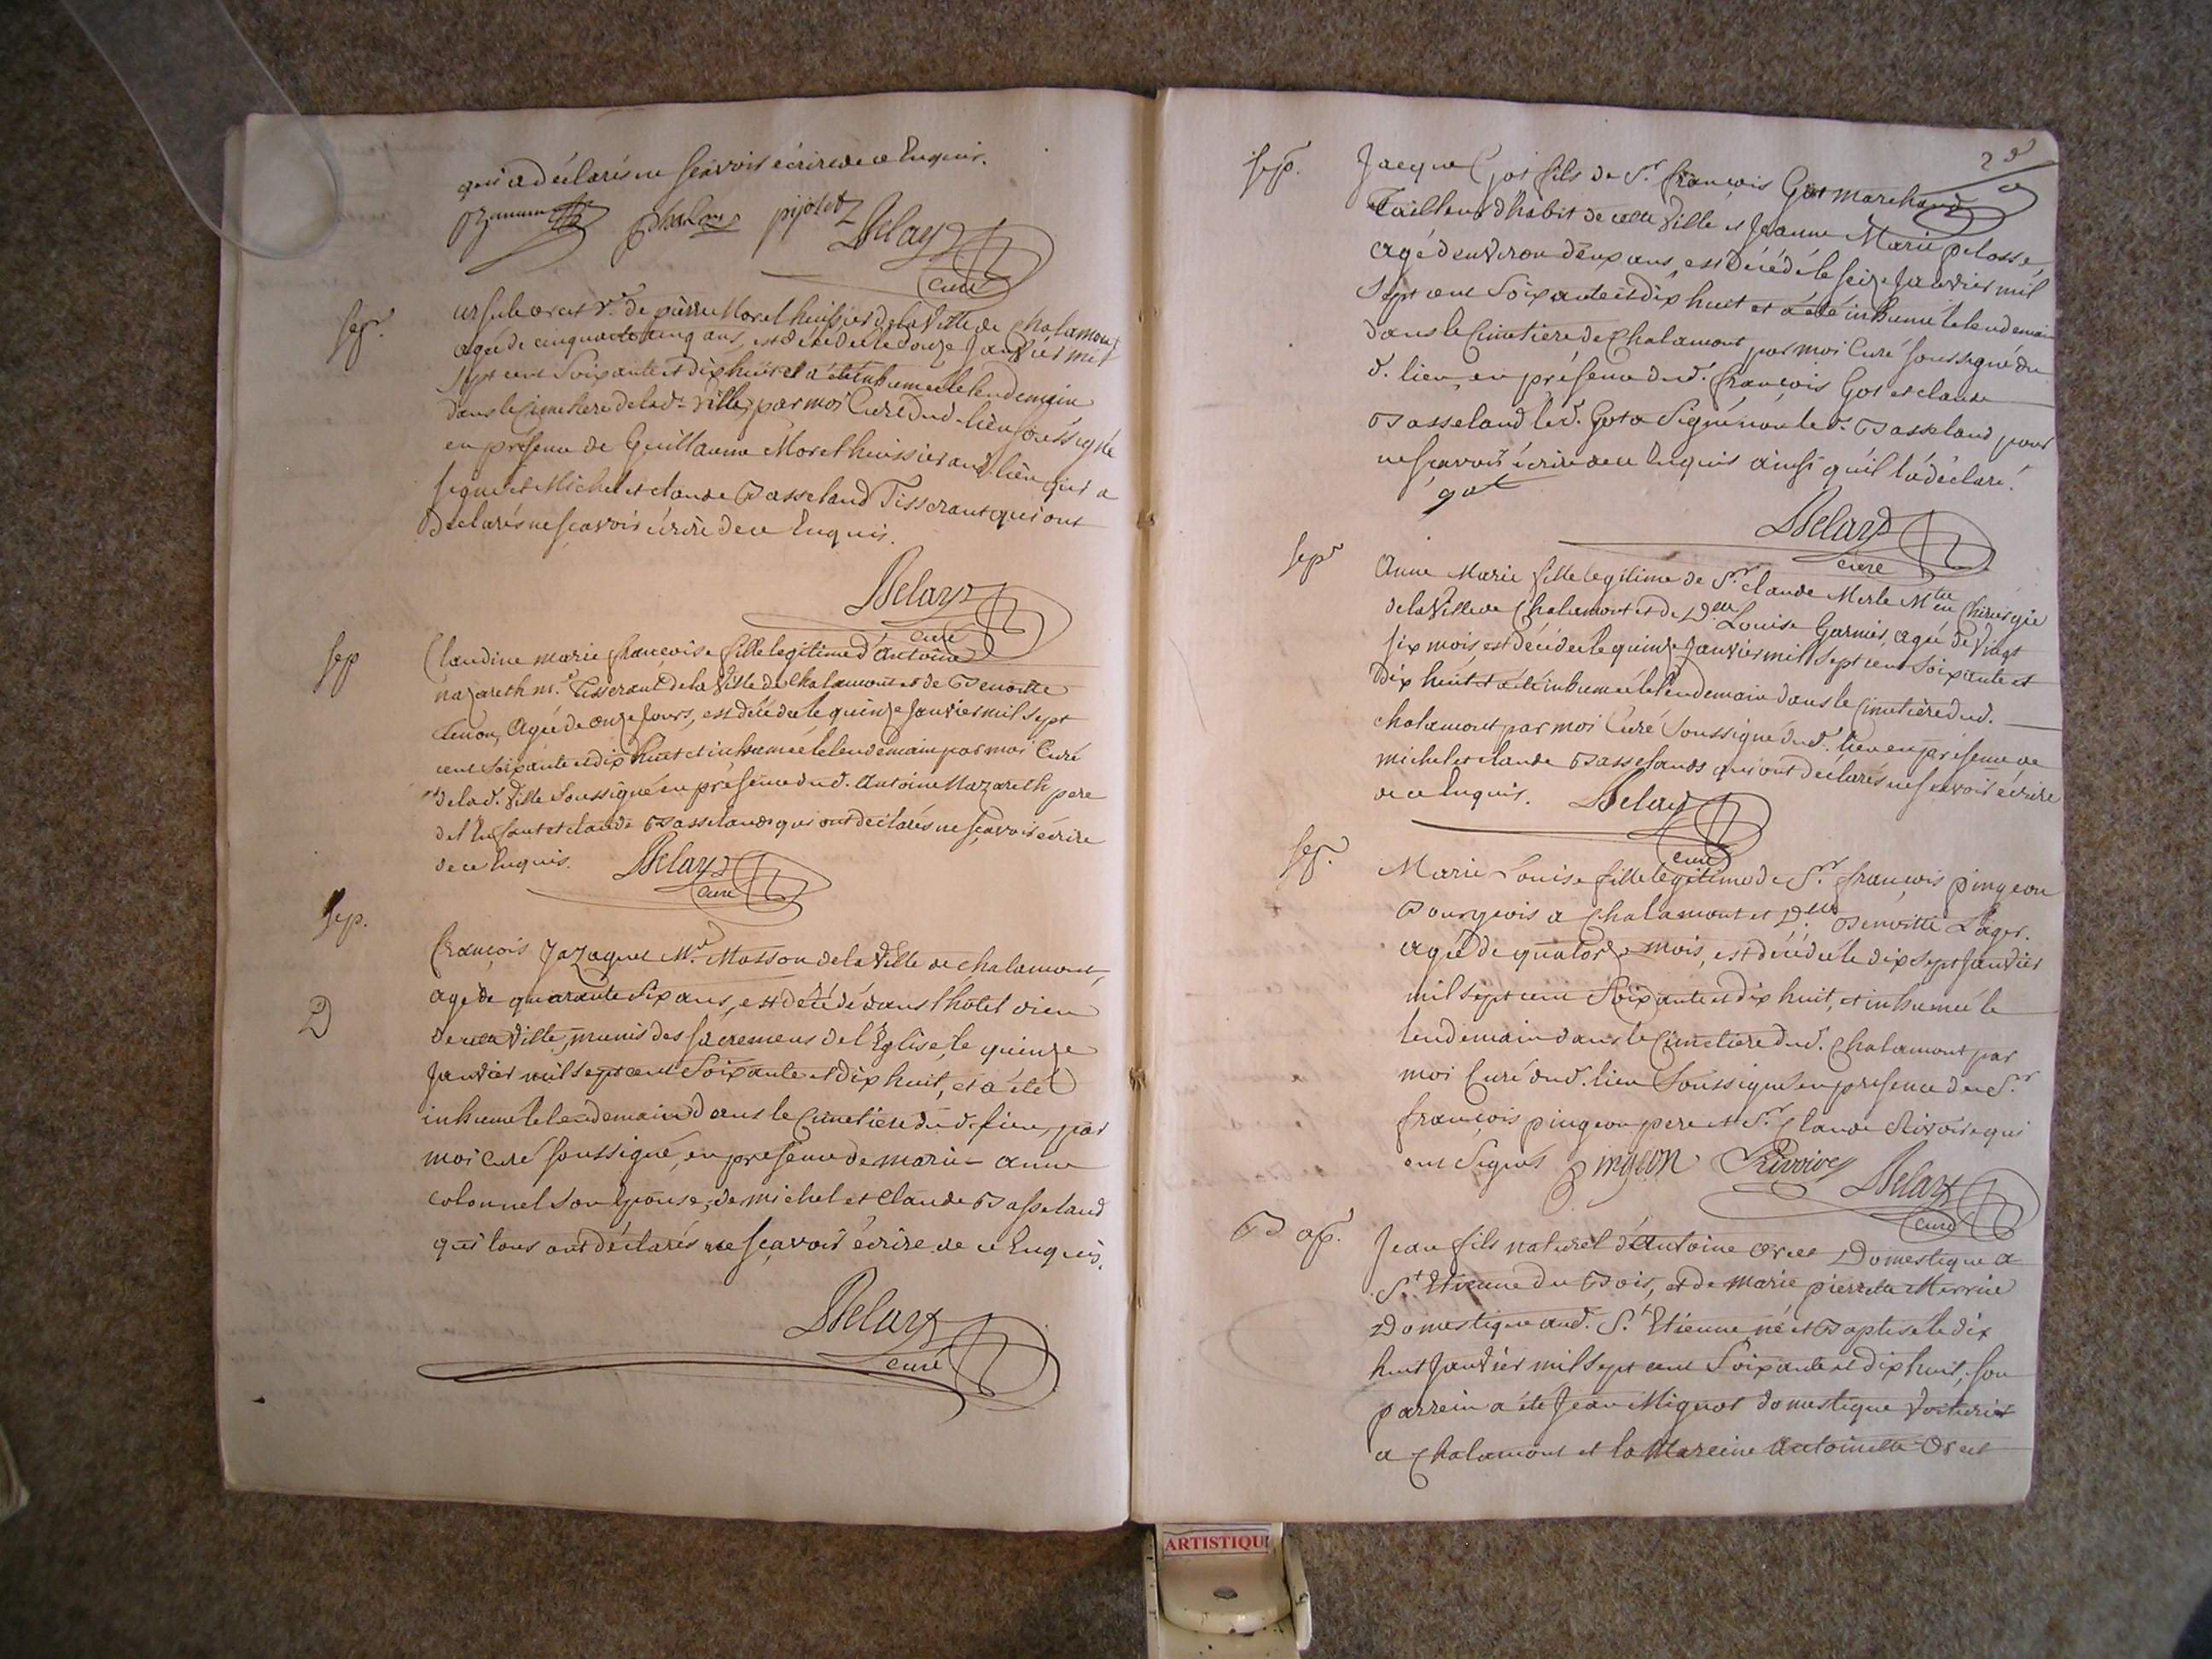 qui a déclarés ne scavoir écrire de ce Enquis.
pijolet Delay
curé
Sep.r
Ursule orset v.e de pierre Morel huissier de la Ville de Chalamont
agée de cinquante cinq ans, est décédée le douze Janvier mil
sept cent Soixante et dix huit et a été inhumée le lendemain
dans le Cimetiere de lad. Ville, par moi Curé dud. lieu soussigné
en présence de Guillaume Morel huissier aud. lieu qui a
signé et Michel et claude Basseland Tisserant qui ont
Déclarés ne sçavoir écrire de ce Enquis.
Delay
curé
Sep
Claudine marie françoise fille legitime d'Antoine
nazareth m.e Tisserant de la Ville de Chalamont et de Benoitte
Agée de onze Jours, est décédée le quinze Janvier mil sept
cent soixante et dix huit et inhumée le lendemain par moi Curé
de lad. Ville Soussigné en présence dud. Antoine Nazareth pere
de l'Enfant et claude Basseland qui ont déclarés ne sçavoir écrire
de ce Enquis. Delay
curé
Sep.
François Jazaquet M.e Masson de la Ville de chalamont,
agé de quarante Six ans, est décédé dans l'hotel dieu
de cette Ville, munis des sacremens de l'Eglise, le quinze
Janvier mil sept cent Soixante et dix huit, et a été
D
inhumé le lendemain dans le Cimetiere dud. lieu, par
moi curé soussigné, en présence de marie-anne
colonnel Son Epouse, de michel et Claude Basseland
qui tous ont déclarés ne sçavoir écrire de ce Enquis.
Delay
curé
Sep.
Jacque Got fils de S.r françois Got marchand
Tailleur d'habit de cette Ville et Jeanne Marie pelosse,
agé d'environ deux ans, est décédé le seize Janvier mil
sept cent Soixante et dix huit et a été inhumé le lendemain
dans le Cimetiere de Chalamont, par moi Curé soussigné du
d. lieu, en présence dud. françois Got et claude
Basseland led. Got a Signé non le d. Basseland pour
ne sçavoir écrire de ce Enquis ainsi qu'il l'a déclaré.
got
Delay
curé
Sep.r
Anne Marie fille legitime de S.r claude Merle M.tre en Chirurgie
de la Ville de Chalamont et de D.lle Louise Garnier, agée de Vingt
six mois, est décédée le quinze Janvier mil sept cent Soixante et
Dix huit et a été inhumée le lendemain dans le Cimetière dud.
chalamont par moi Curé Soussigné dud. lieu en présence de
michel et claude Basselands qui ont déclarés ne sçavoir écrire
de ce Enquis. Delay
curé
Sep.
Marie Louise fille légitime de S.r françois pingeon
Bourgeois a Chalamont et D.lle Benoitte Lager.
agée de quatorze mois, est décédée le dix sept Janvier
mil sept cent Soixante et dix huit, et inhumée le
lendemain dans le Cimetiere dud. Chalamont par
moi Curé dud. lieu Soussigné en présence du S.r
françois pingeon pere et S.r Claude Rivoire qui
ont Signés pingeon Rivoire Delay
curé
Bap.
Jean fils naturel d'Antoine orset Domestique a
S.t Etienne du Bois, et de marie pierrette
Domestique aud. S.t Etienne né et Baptisé le dix
huit Janvier mil sept cent Soixante et dix huit, son
parrein a été Jean Mignot domestique voiturier
a Chalamont et la Mareine Antoinette Orset
ARTISTIQU